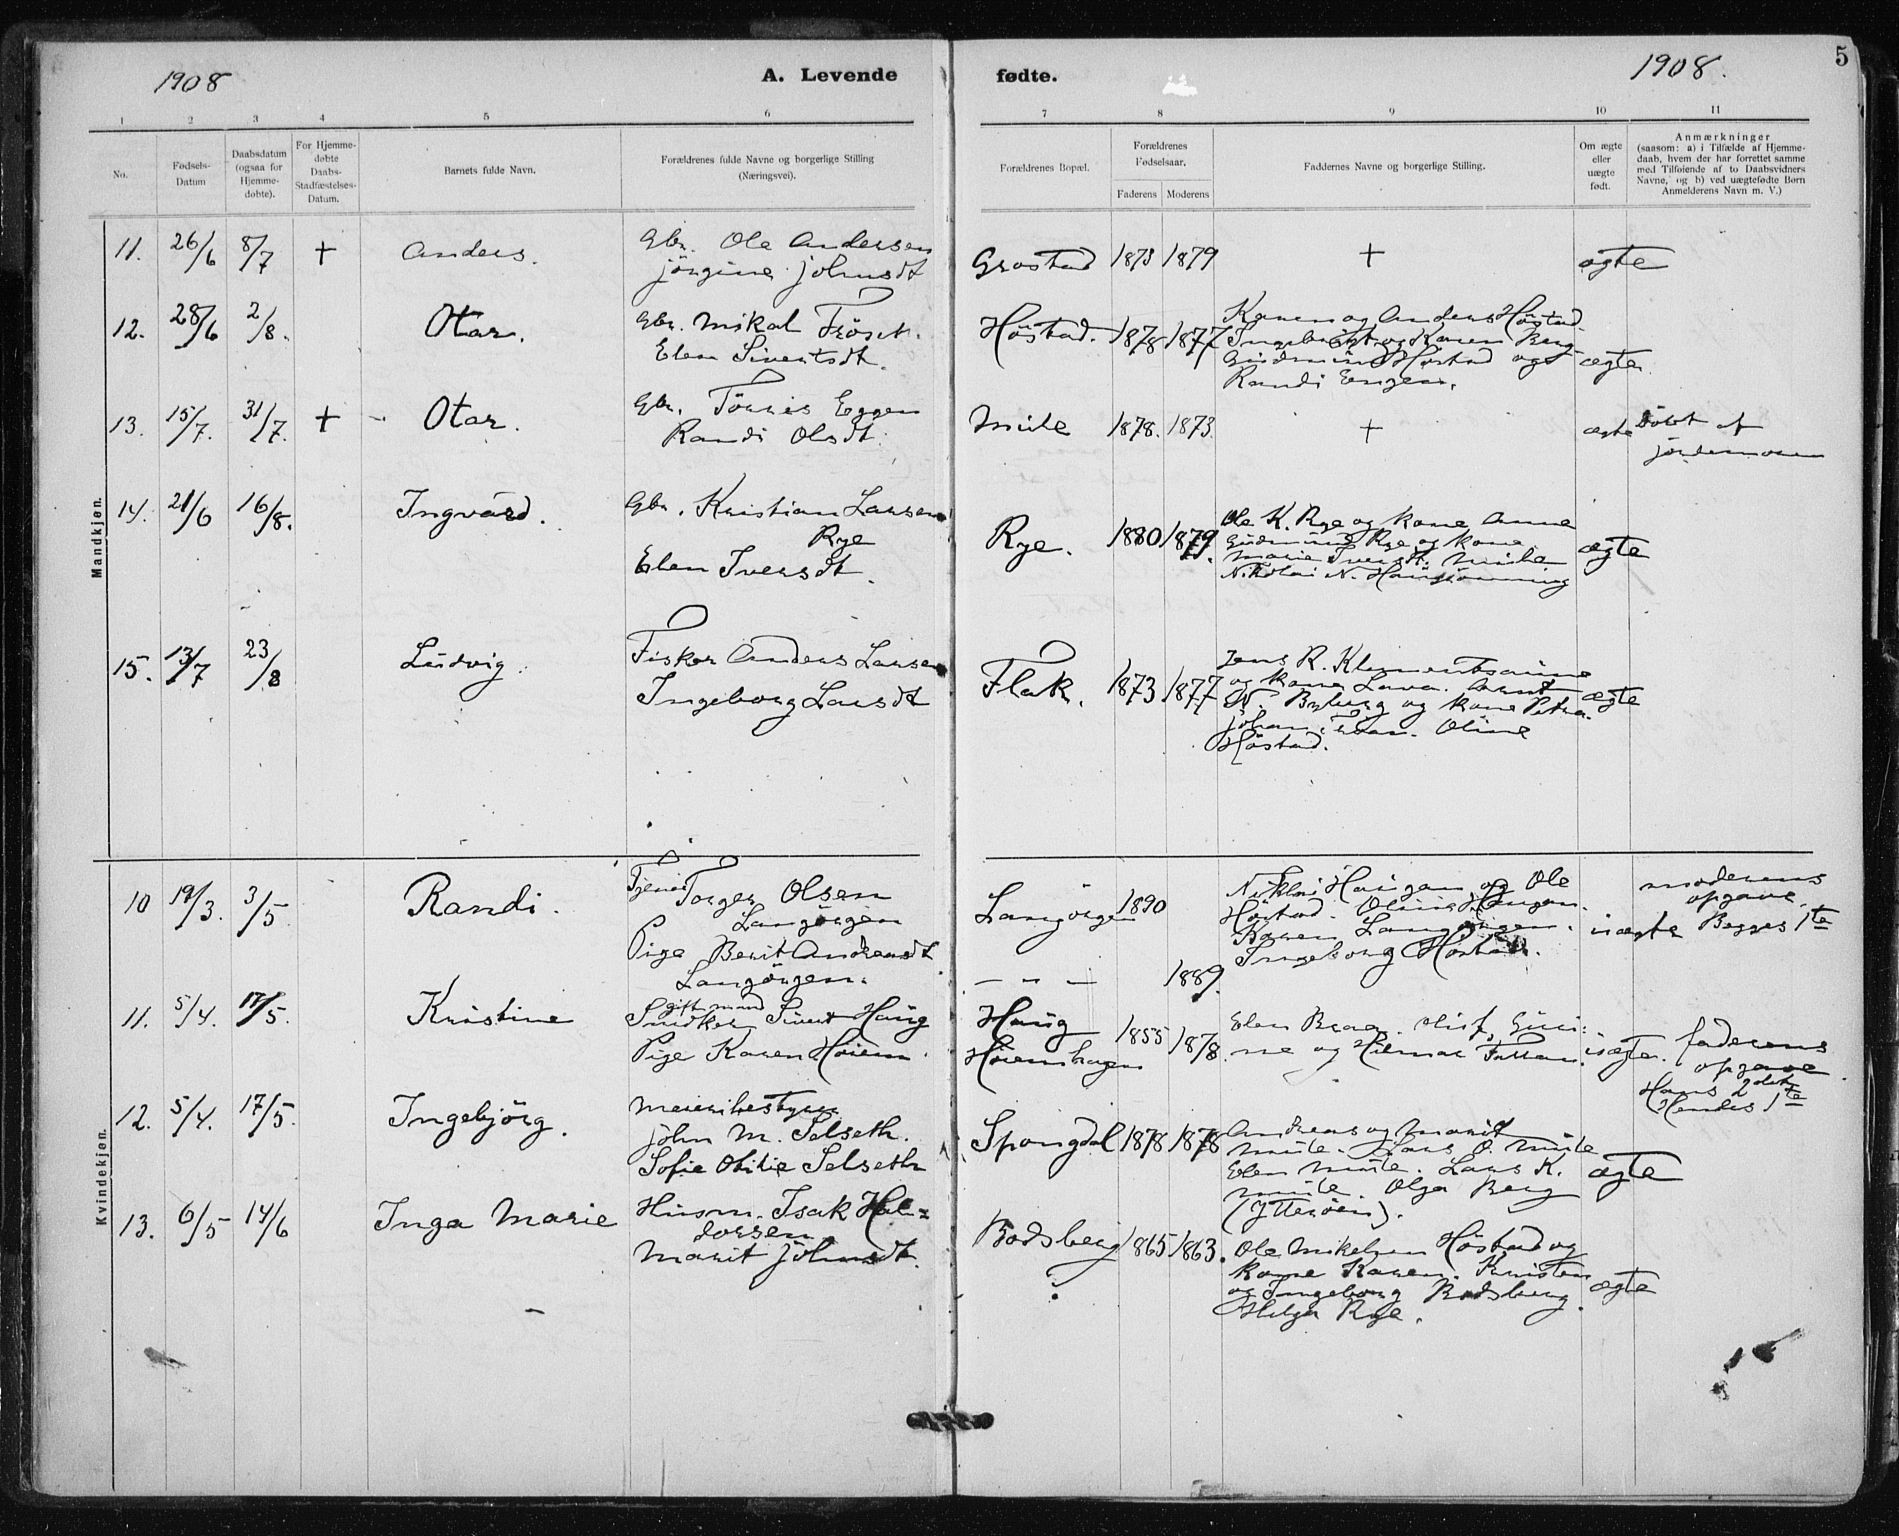 1908
A. Levende fødte.
1908.
5
1 2 3 4 5 6 7 8 9 10 11
No.
Fødsels-
Datum
Daabsdatum
(ogsaa for
Hjemme-
døbte).
For Hjemme-
døbte
Daabs-
Stadfæstelses-
Datum.
Barnets fulde Navn.
Forældrenes fulde Navne og borgerlige Stilling
(Næringsvei).
Forældrenes Bopæl.
Forældrenes
Fødselsaar.
Faderens Moderens
Faddernes Navne og borgerlige Stilling.
Om ægte
eller
uægte
født.
Anmærkninger
(saasom: a) i Tilfælde af Hjemme-
daab, hvem der har forrettet samme
med Tilføiende af to Daabsvidners
Navne, og b) ved uægtefødte Børn
Anmelderens Navn m. V.)
Mandkjøn.
11. 26/6 8/7 + Anders. Gbr. Ole Andersen
Jörgine Johnsdt
Grostad 1873 1879 + ægte
12. 28/6 2/8. Otar. Gbr. Mikal Fröset.
Elen Sivertsdt.
Höstad. 1878 1877 Karen og Anders Höstad.
Ingebrigt og Karen Berg
Gudmund Höstad og
Randi Engen.
ægte
13. 15/7. 31/7. + - Otar. Gbr. Törris Eggen
Randi Olsdt.
Mule 1878. 1873. + ægte Döbt af
jordemoren
14. 21/6 16/8. Ingvard. Gbr. Kristian Larsen
Rye
Elen Iversdt.
Rye. 1880 1879. Ole K. Rye og kone Anne
Gudmund Rye og kone
Marie Iversdt. Mule
Nikolai N.
ægte
15. 13/7 23/8 Ludvig. Fisker Anders Larsen
Ingeborg Larsdt
Flak. 1873 1877 Jens R. Klementsaune
og kone Lava. Arnt
N. Byberg og kone Petra.
Johan Oline
Höstad.
ægte
Kvindekjøn.
10 19/3. 3/5. Randi. Tjener Torger Olsen
Langörgen
Pige Berit Andreasdt
Langörgen.
Langörgen 1890
— " — 1889.
Niklai Haugen og Ole
Höstad. Oline Haugen.
Karen Langörgen.
Ingeborg Höstad.
uægte
moderens
opgave.
Begges 1te
11. 5/4. 17/5. Kristine gift mand
Snedker Sivert Haug
Pige Karen Höiem.
Haug
Höiemshagen
1855 1878. Elen Braa. Guri:
ne og Hilmar
uægte.
faderens
opgave
Hans 2det
Hendes 1te
12. 5/4. 17/5. Ingebjörg. Meieribestyrer
John M. Selseth.
Sofie Otilie Selseth
Spongdal 1878 1878 Andreas og Marit
Mule. Lars O. Mule
Elen Mule. Lars K.
Mule. Olga Berg
(Ytteröen).
ægte
13. 6/5 14/6 Inga Marie Husm. Isak Hal=
dorsen
Marit Johnsdt.
Bodsberg 1865 1863. Ole Mikelsen Höstad og
kone Karen. Kristen
og Ingeborg Bodsberg.
Helga Rye.
ægte